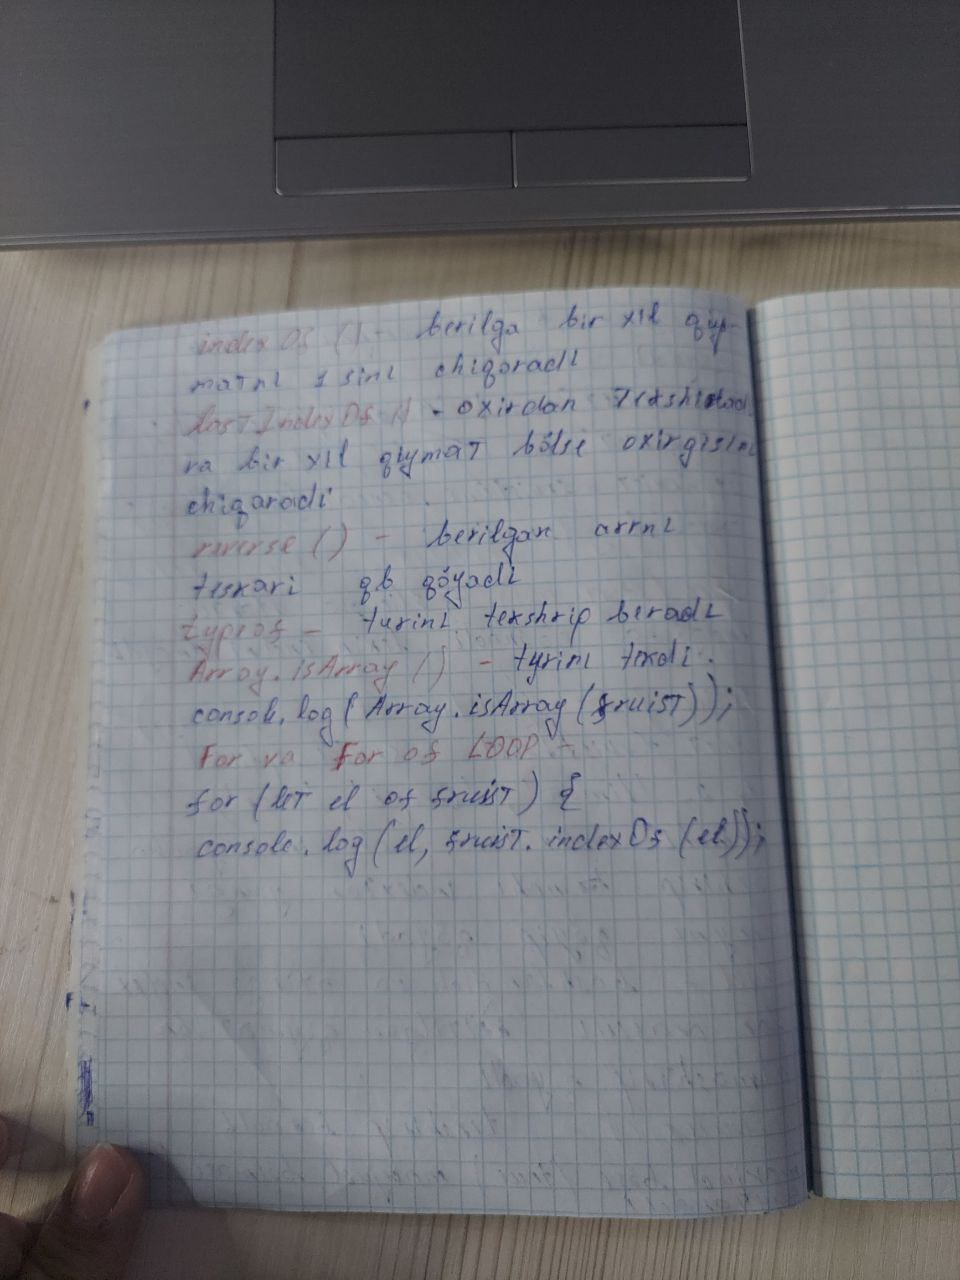 indexOf () - berilga bir xil qiy-
matni 1 sini chiqaradi
lastIndexOf () - oxirdan tekshiradi
va bir xil qiymat bölsa oxirgisini
chiqaradi
reverse () - berilgan arrni
teskari qb qöyadi
typeof - turini tekshrip beradi
Array.isArray () - tyrini
console.log(Array.isArray(fruist));
For va For of LOOP -
for (let el of fruist) {
console.log(el, fruist.indexOf(el));